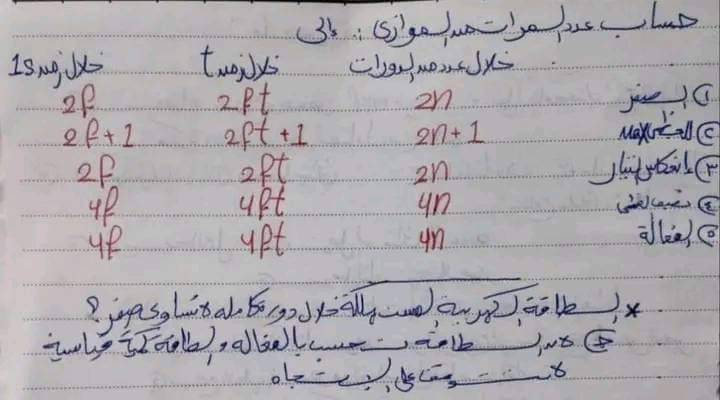 حساب عدد المرات من الموازى : إلى
خلال عدد من الدورات خلال زمن t خلال زمن 1s
① الصفر 2n 2ft 2f
② Max 2n+1 2ft+1 2f+1
③ إنعكاس التيار 2n 2ft 2f
④ نصف العظمى 4n 4ft 4f
⑤ الفعالة 4n 4ft 4f
* الطاقة الكهربية المستهلكة خلال دورة كاملة لا تساوى صفر ؟
لان الطاقة تحسب بالفعالة و الطاقة كمية قياسية
لا تتوقف على الإتجاه